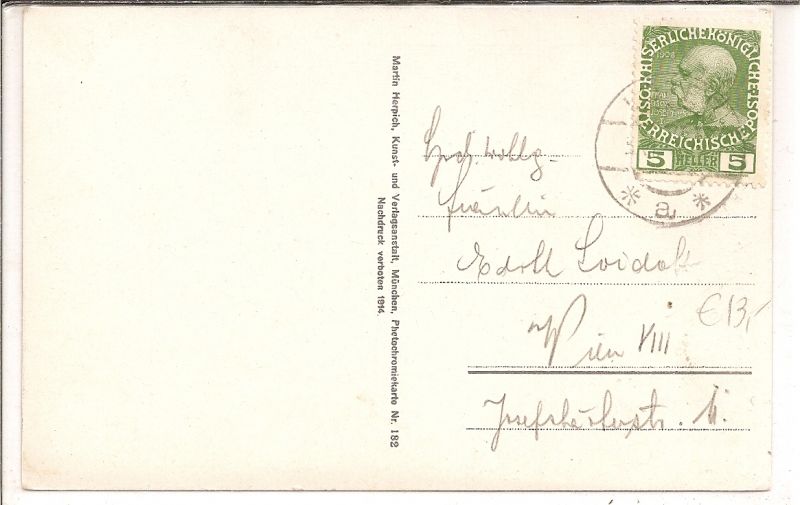 Martin Herpich, Kunst- und Verlagsanstalt, München, Photochromiekarte Nr. 182
Nachdruck verboten 1914.
KAISERLICHE KÖNIGLICHE ÖSTERREICHISCHE POST
1908
5 HELLER 5
a
Fräulein
Wien VIII
Josefstädterstr.
€ 13,-